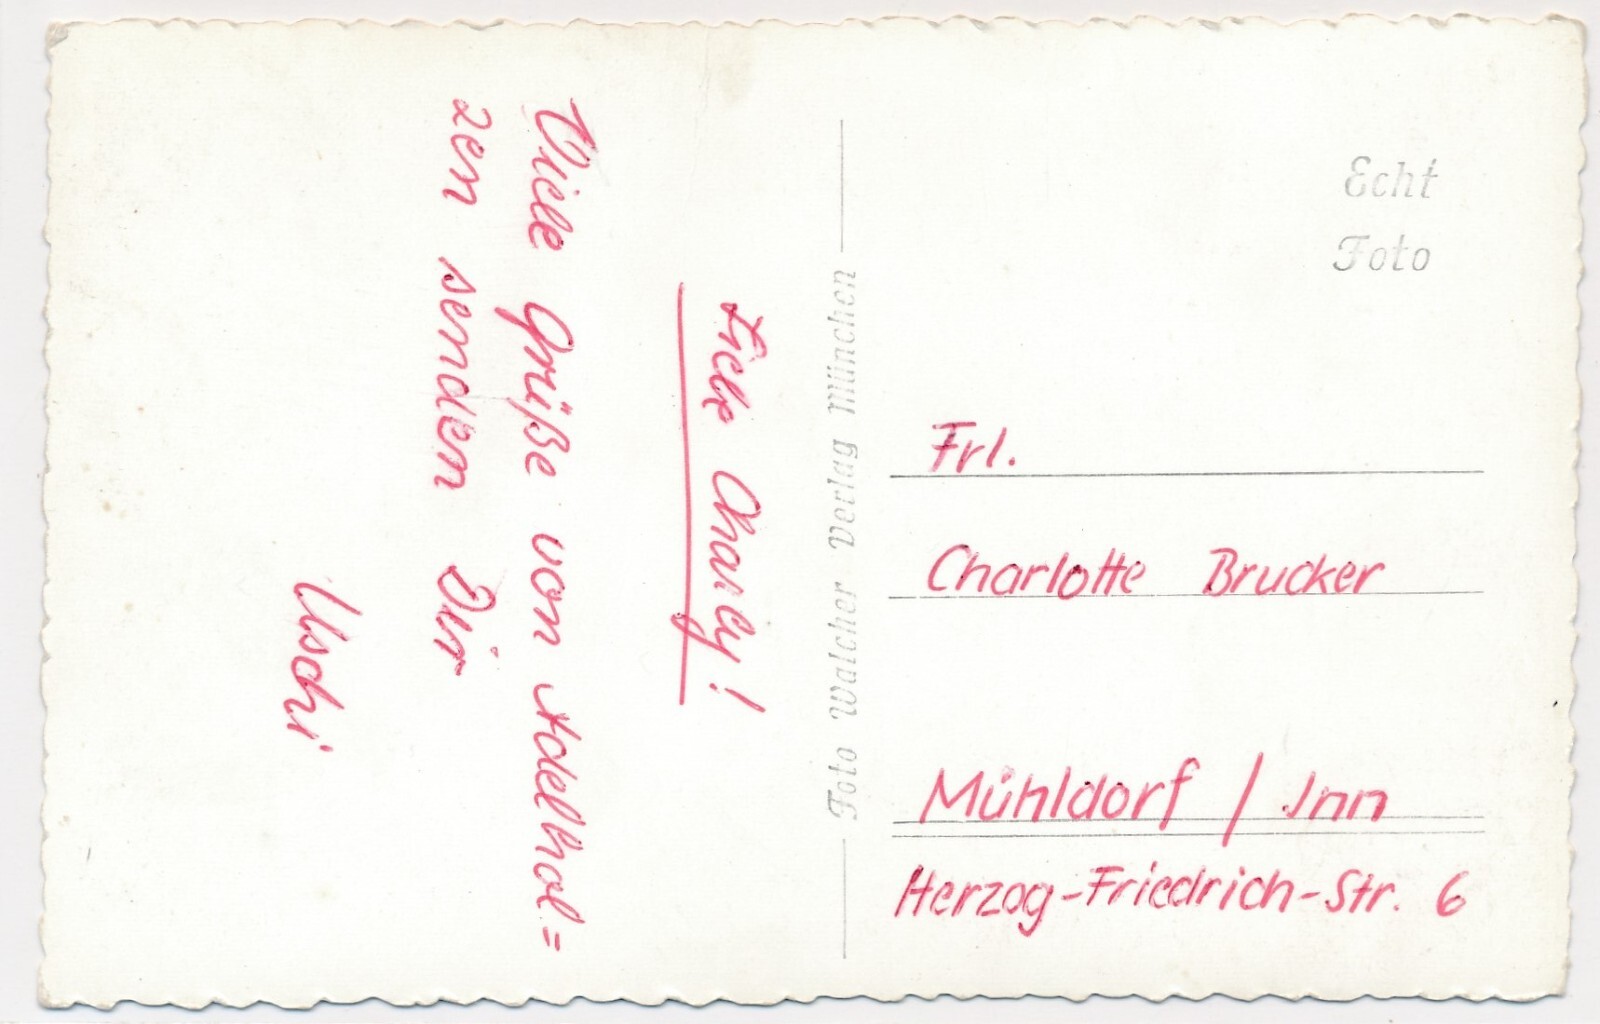 Liebe Charly!
Viele Grüße von Adelhol=
zen senden Dir
Uschi
Foto Walcher Verlag München
Echt
Foto
Frl.
Charlotte Brucker
Mühldorf / Inn
Herzog-Friedrich-Str. 6